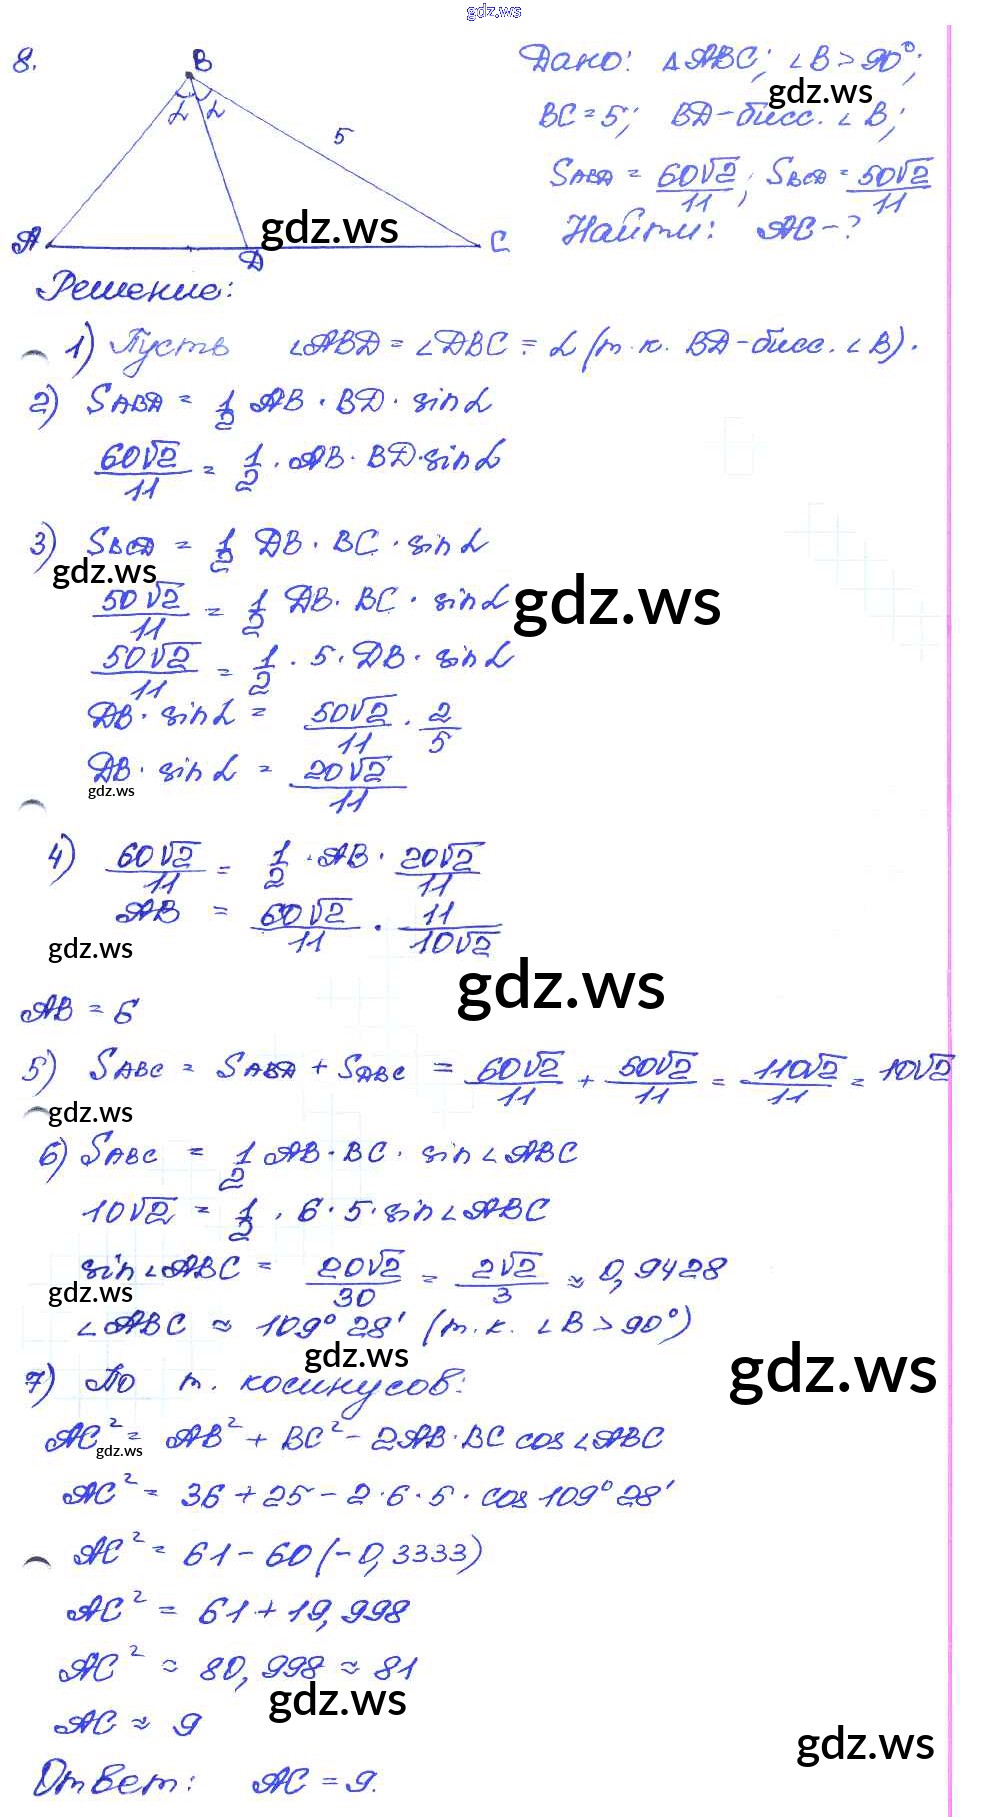 gdz.ws
8.
B
Дано: △ABC; ∠B > 90°;
gdz.ws
α α
5
BC = 5; BD - бисс. ∠B;
S_ABD = 60√2/11; S_BCD = 50√2/11
A D C
gdz.ws
Найти: AC - ?
Решение:
1) Пусть ∠ABD = ∠DBC = α (т.к. BD - бисс. ∠B).
2) S_ABD = 1/2 AB · BD · sin α
60√2/11 = 1/2 · AB · BD · sin α
3) S_BCD = 1/2 DB · BC · sin α
gdz.ws
50√2/11 = 1/2 DB · BC · sin α
gdz.ws
50√2/11 = 1/2 · 5 · DB · sin α
DB · sin α = 50√2/11 · 2/5
DB · sin α = 20√2/11
gdz.ws
4) 60√2/11 = 1/2 · AB · 20√2/11
AB = 60√2/11 · 11/10√2
gdz.ws
gdz.ws
AB = 6
5) S_ABC = S_ABD + S_DBC = 60√2/11 + 50√2/11 = 110√2/11 = 10√2
gdz.ws
6) S_ABC = 1/2 AB · BC · sin ∠ABC
10√2 = 1/2 · 6 · 5 · sin ∠ABC
sin ∠ABC = 20√2/30 = 2√2/3 ≈ 0,9428
gdz.ws
∠ABC ≈ 109° 28' (т.к. ∠B > 90°)
gdz.ws
gdz.ws
7) По т. косинусов:
AC² = AB² + BC² - 2AB · BC cos ∠ABC
gdz.ws
AC² = 36 + 25 - 2 · 6 · 5 · cos 109° 28'
AC² = 61 - 60 (-0,3333)
AC² = 61 + 19,998
AC² ≈ 80,998 ≈ 81
gdz.ws
AC ≈ 9
gdz.ws
Ответ: AC = 9.